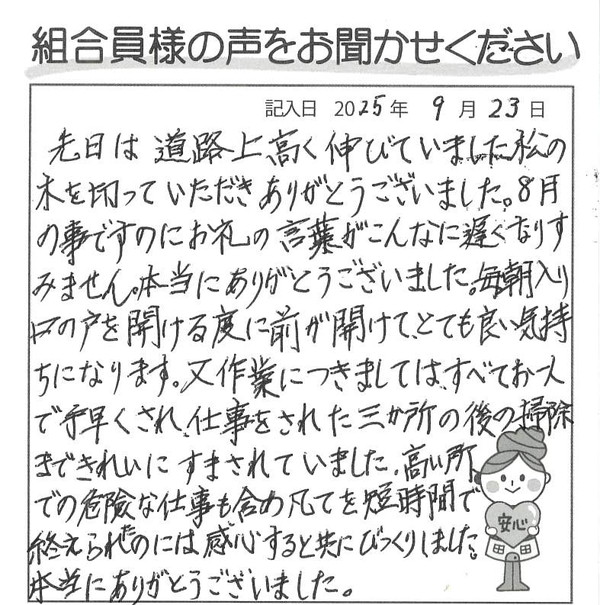 組合員様の声をお聞かせください
記入日 2025年 9月 23日
先日は道路上高く伸びていました松の
木を切っていただきありがとうございました。8月
の事ですのにお礼の言葉がこんなに遅くなりす
みません。本当にありがとうございました。毎朝入り
口の戸を開ける度に前が開けて、とても良い気持
ちになります。又作業につきましては、すべてお一人
で手早くされ、仕事をされた三か所の後の掃除
まできれいにすまされていました。高い所
での危険な仕事も含め凡てを短時間で
終えられたのには感心すると共にびっくりしました。
本当にありがとうございました。
安心